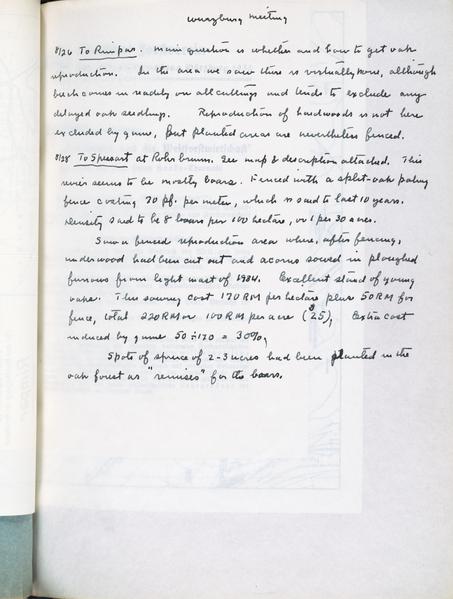 Wurzburg meeting
8/26 To Rimpar. Main question is whether and how to get oak
reproduction. In the area we saw there is virtually none, although
beech comes in readily on all cuttings and tends to exclude any
delayed oak seedlings. Reproduction of hardwoods is not here
excluded by game, but planted areas are nevertheless fenced.
8/28 To Spessart at Rohrbrunn. See map & description attached. This
revier seems to be mostly boars. Fenced with a split-oak paling
fence costing 70 pf. per meter, which is said to last 10 years.
Density said to be 8 boars per 100 hectare, or 1 per 30 acres.
Saw a fenced reproduction area where, after fencing,
underwood had been cut out and acorns sowed in ploughed
furrows from light mast of 1934. Excellent stand of young
oaks. This sowing cost 170 RM per hectare plus 50 RM for
fence, total 220 RM or 100 RM per acre ($25). Extra cost
induced by game 50÷170 = 30%.
Spots of spruce of 2-3 acres had been planted in the
oak forest as "remises" for the boars.